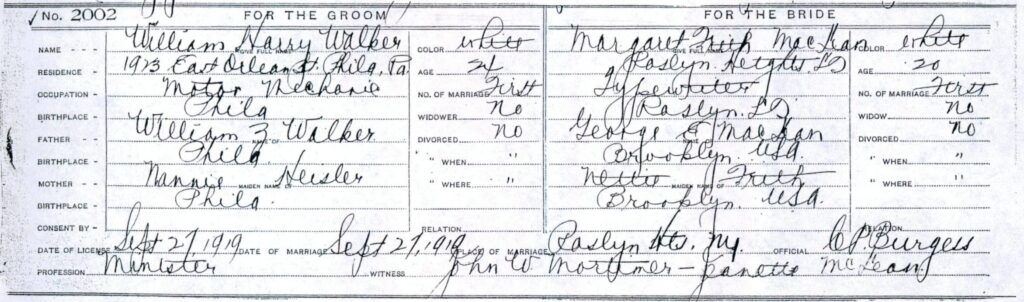 ✓ No. 2002 FOR THE GROOM FOR THE BRIDE
NAME - - William Harry Walker COLOR white Margaret Frith MacLean COLOR white
GIVE FULL NAME GIVE FULL NAME
RESIDENCE - 1923 East Orleans St. Phila, Pa. AGE 24 Roslyn Heights L I AGE 20
OCCUPATION - Motor Mechanic NO. OF MARRIAGE First Typewriter NO. OF MARRIAGE First
BIRTHPLACE - Phila WIDOWER No Roslyn L I WIDOW No
FATHER - - William Z Walker DIVORCED No George E MacLean DIVORCED No
NAME OF NAME OF
BIRTHPLACE - Phila. " WHEN " Brooklyn. USA. " WHEN "
MOTHER - Nannie Heisler " WHERE " Nettie Frith " WHERE "
MAIDEN NAME OF MAIDEN NAME OF
BIRTHPLACE - Phila. Brooklyn. USA.
CONSENT BY - RELATION RELATION
DATE OF LICENSE Sept 27, 1919 DATE OF MARRIAGE Sept 27, 1919 PLACE OF MARRIAGE Roslyn Hts. Ny. OFFICIAL C P. Burgess
PROFESSION Minister WITNESS John W Mortimer - Jeanette McLean